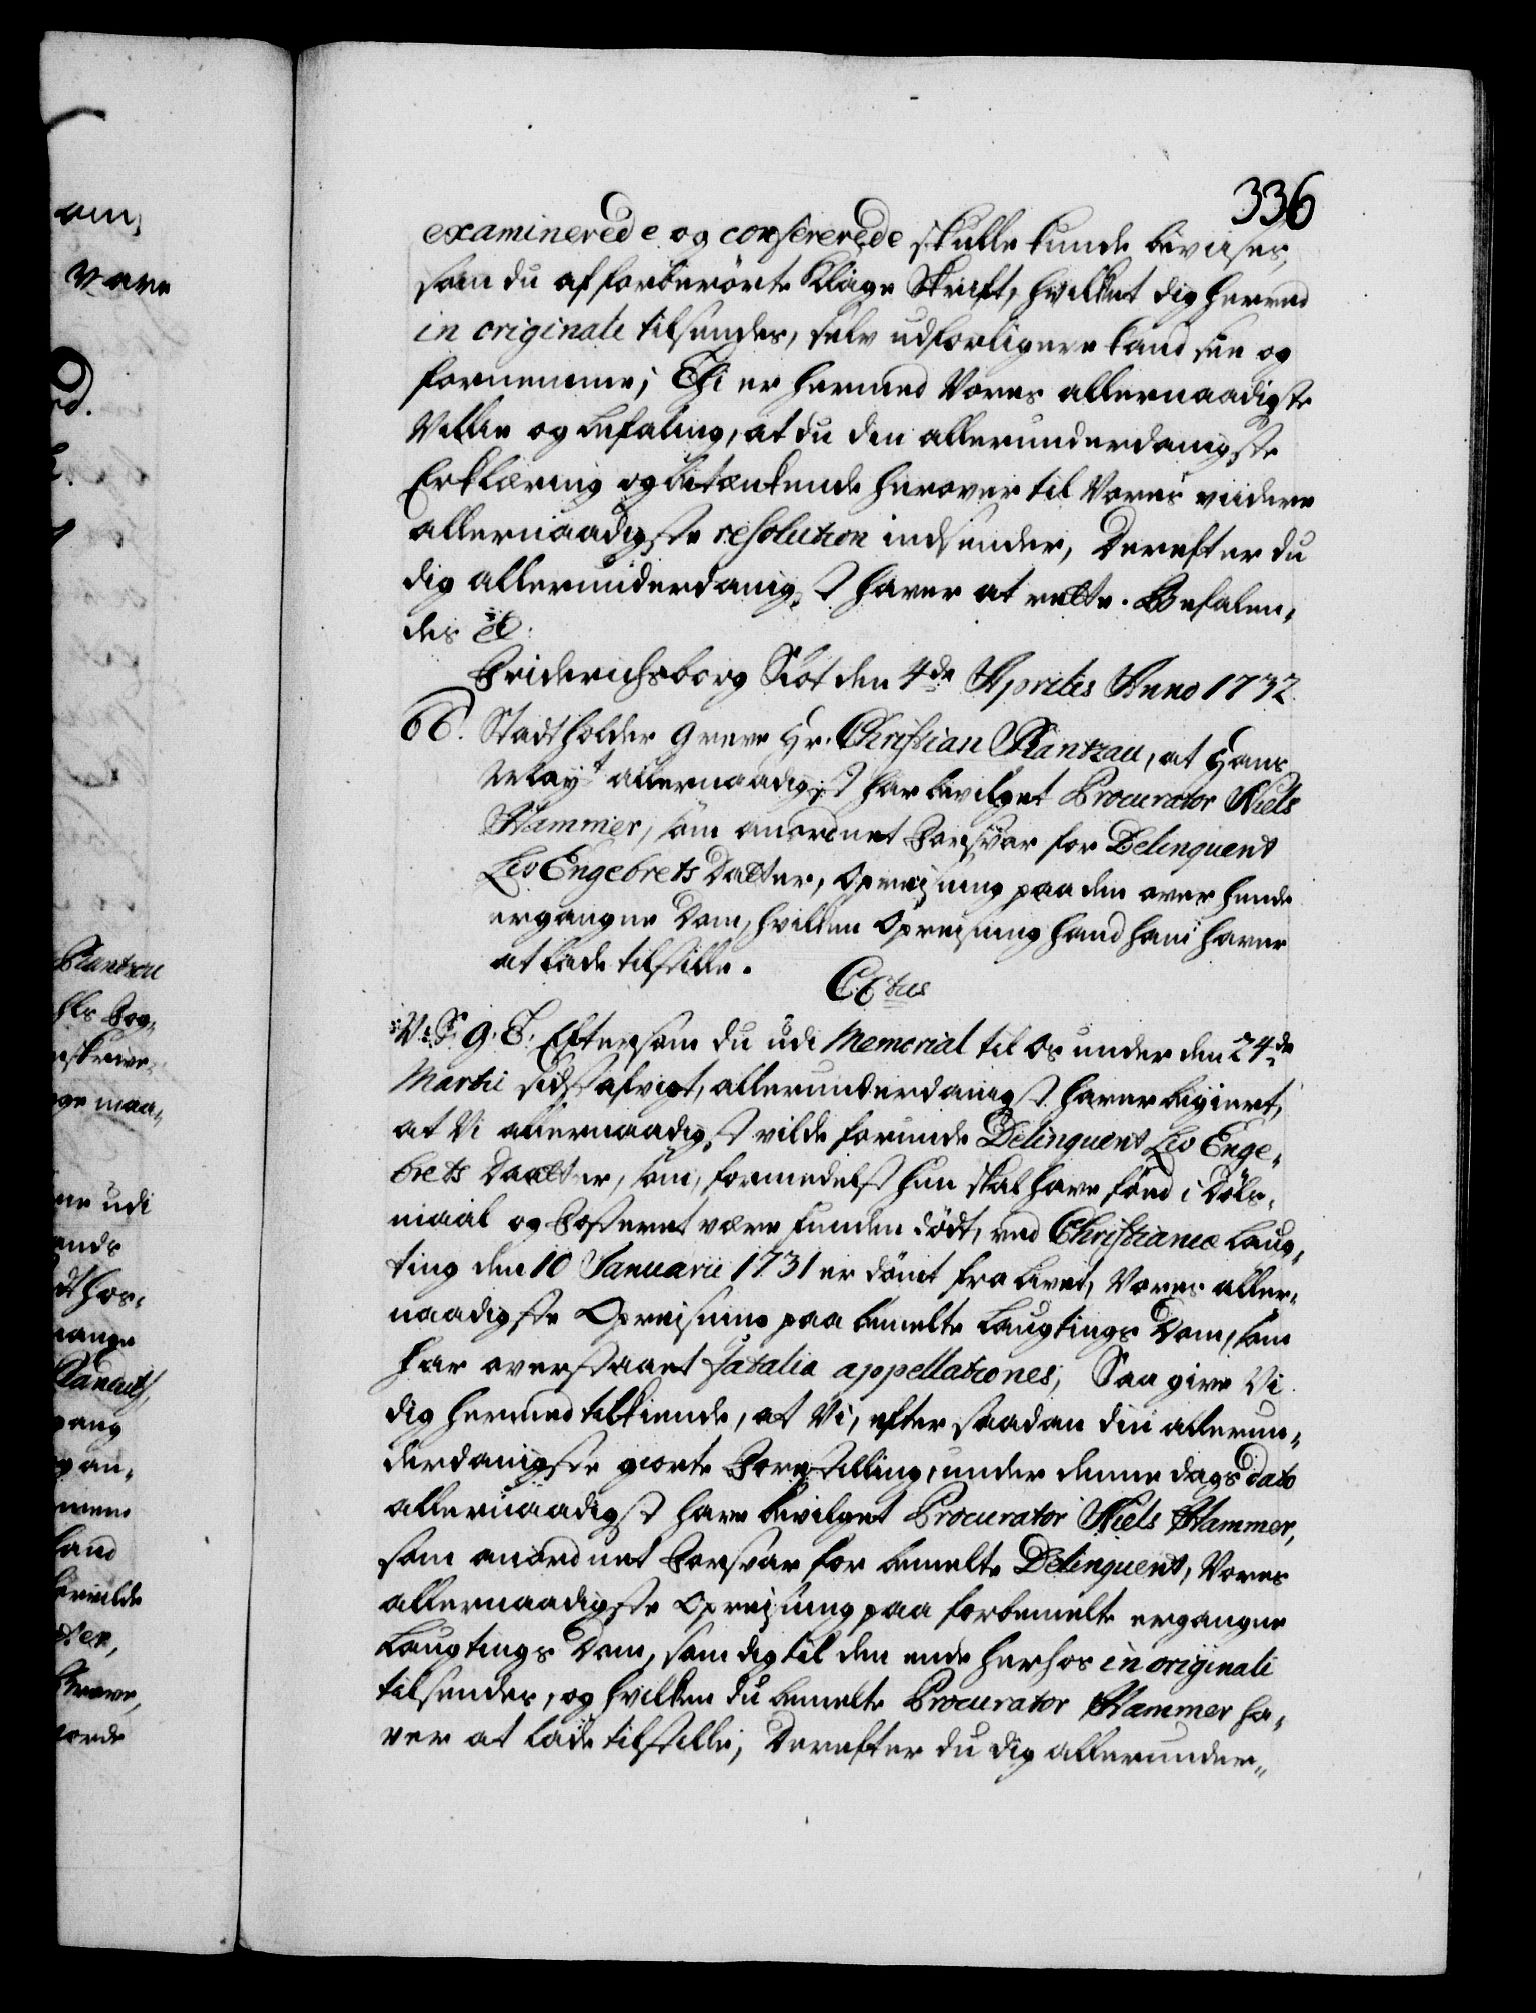 336
examinerede og confererede skulle kunde bevises,
som du af forberörte Klage Skrift, hvilket dig hermed
in originali tilsendes, selv udförligere kand see og
fornemme; Thi er hermed Vores allernaadigste
Villie og befaling, at du din allerunderdanigste
Erklæring og betænkende herover til Vores viidere
allernaadigste resolution indsender, Derefter du
dig allerunderdanigst haver at rette. Befalen-
des &c:
Friderichsborg Slot den 4de Aprilis Anno 1732.
66. Stadtholder Greve Hr. Christian Rantzau, at Hans
Mayt allernaadigst har bevilget Procurator Niels
Hammer, som anordnet Forsvar for Delinquent
Liv Engebrets Datter, Opreisning paa den over hende
ergangne Dom, hvilken Opreisning hand ham haver
at lade tilstille.
C6tus
V. S. G. T. Eftersom du udi Memorial til Os under den 24de
Martii sidstafvigt, allerunderdanigst haver begiert,
at Vi allernaadigst vilde forunde Delinquent Liv Enge-
brets Daatter, som, formedelst hun skal have föed i Döls-
maal og Fosteret være funden dödt, ved Christianiæ Laug-
ting den 10 Januarii 1731 er dömt fra livet, Vores aller-
naadigste Opreisning paa bemelte Laugtings Dom, som
har overstaaet fatalia appellationes, Saa give Vi
dig hermed tilkiende, at Vi, efter saadan din allerun-
derdanigste giorte Forestilling, under denne dags dato
allernaadigst have bevilget Procurator Niels Hammer,
som anordnet Forsvar for bemelte Delinquent, Vores
allernaadigste Opreisning paa forbemelte ergangne
Laugtings Dom, som dig til den ende herhos in originali
tilsendes, og hvilken du bemelte Procurator Hammer ha-
ver at lade tilstille; Derefter du dig allerunder-